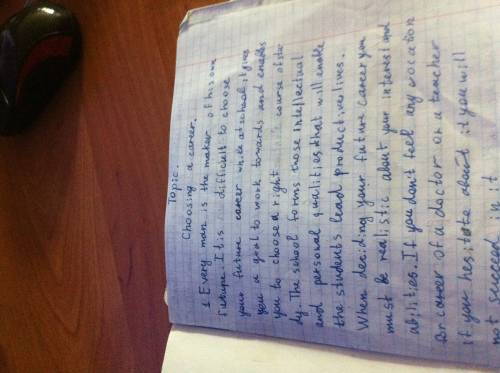 Topic.
Choosing a career.
1. Every man is the maker of his own
future. It is difficult to choose
your future career while at school, it gives
you a goal to work towards and enables
you to choose a right course of stu
dy. The school forms those intellectual
and personal qualities that will enable
the students lead productive lives.
When deciding your future career you
must be realistic about your interest and
abilities. If you don't feel any vocation
for career of a doctor or a teacher
if you hesitate about it you will
not succeed in it